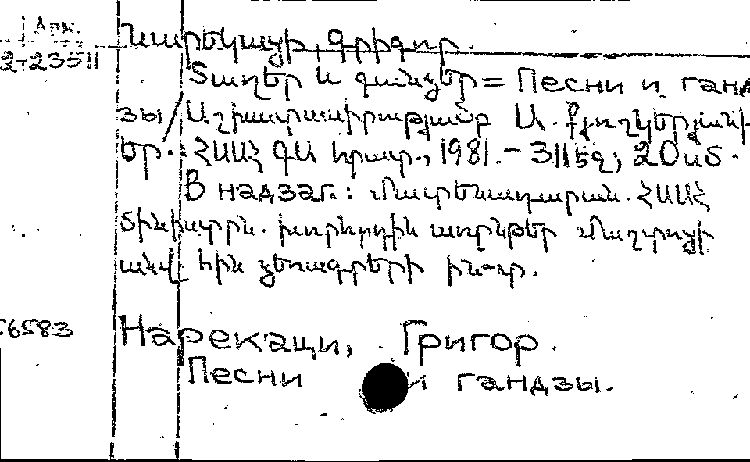 Арм.
2-23511
Նարեկացի, Գրիգոր.
Տաղեր և գանձեր = Песни и ганд
зы / Աշխատասիրությամբ Ա. Քյոշկերյանի
Եր.: ՀՍՍՀ ԳԱ հրատ., 1981. – 311 էջ; 20 սմ.
В надзаг.: Մատենադարան. ՀՍՍՀ
Մինիստրն. խորհրդին առընթեր Մաշտոցի
անվ. հին ձեռագրերի ին-տ.
6583 Нарекаци, Григор.
Песни и гандзы.